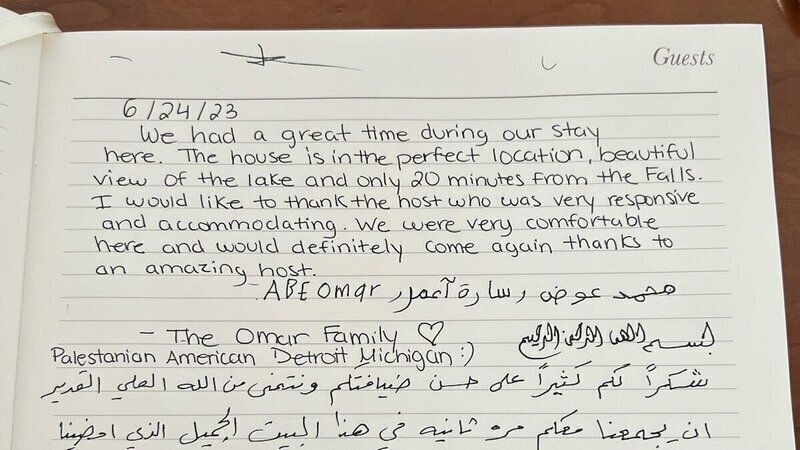 Guests
6/24/23
We had a great time during our stay
here. The house is in the perfect location, beautiful
view of the lake and only 20 minutes from the Falls.
I would like to thank the host who was very responsive
and accommodating. We were very comfortable
here and would definitely come again thanks to
an amazing host.
ABE Omar محمد عوض وسارة
- The Omar Family ♡
بسم الله الرحمن الرحيم
Palestanian American Detroit Michigan :)
شكراً لكم كثيراً على حسن ضيافتكم ونتمنى من الله العلي القدير
ان يجمعنا معكم مره ثانيه في هذا البيت الجميل الذي امضينا